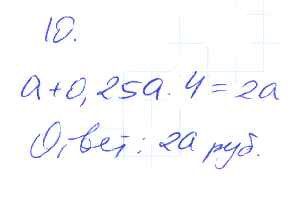 10.
a+0,25a·4=2a
Ответ: 2а руб.